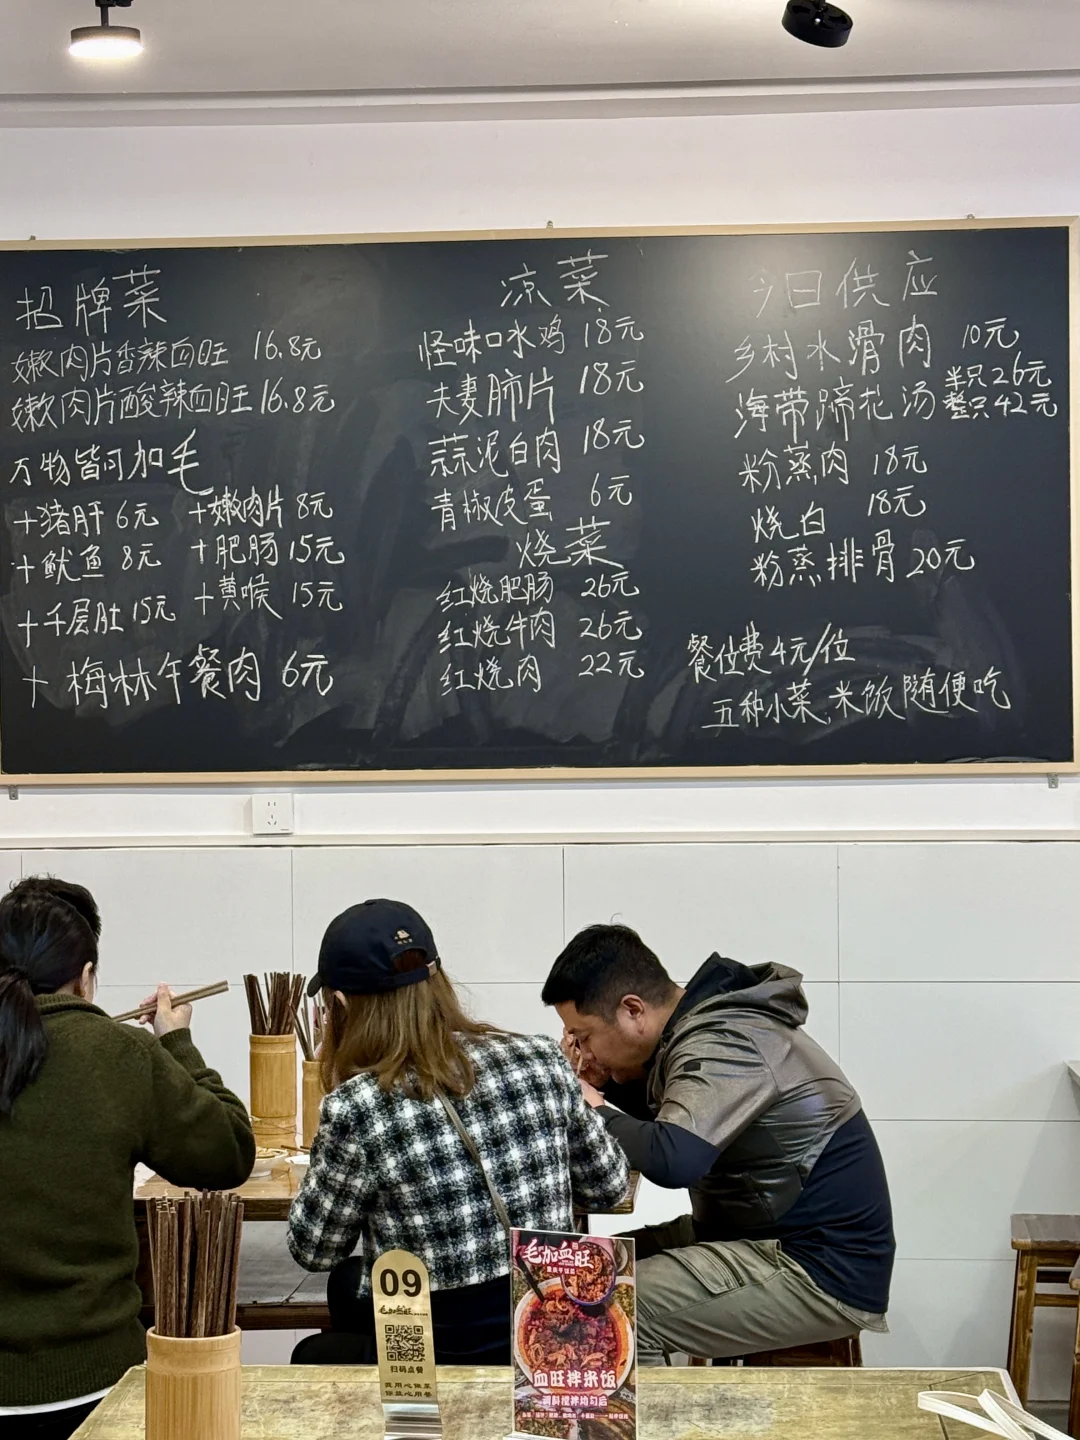 招牌菜
嫩肉片香辣血旺 16.8元
嫩肉片酸辣血旺 16.8元
万物皆可加毛
+猪肝 6元 +嫩肉片 8元
+鱿鱼 8元 +肥肠 15元
+千层肚 15元 +黄喉 15元
+梅林午餐肉 6元
凉菜
怪味口水鸡 18元
夫妻肺片 18元
蒜泥白肉 18元
青椒皮蛋 6元
烧菜
红烧肥肠 26元
红烧牛肉 26元
红烧肉 22元
今日供应
乡村水滑肉 10元
海带蹄花汤 半只26元
整只42元
粉蒸肉 18元
烧白 18元
粉蒸排骨 20元
餐位费4元/位
五种小菜,米饭随便吃
09
毛加血旺
扫码点餐
毛加血旺
血旺拌米饭